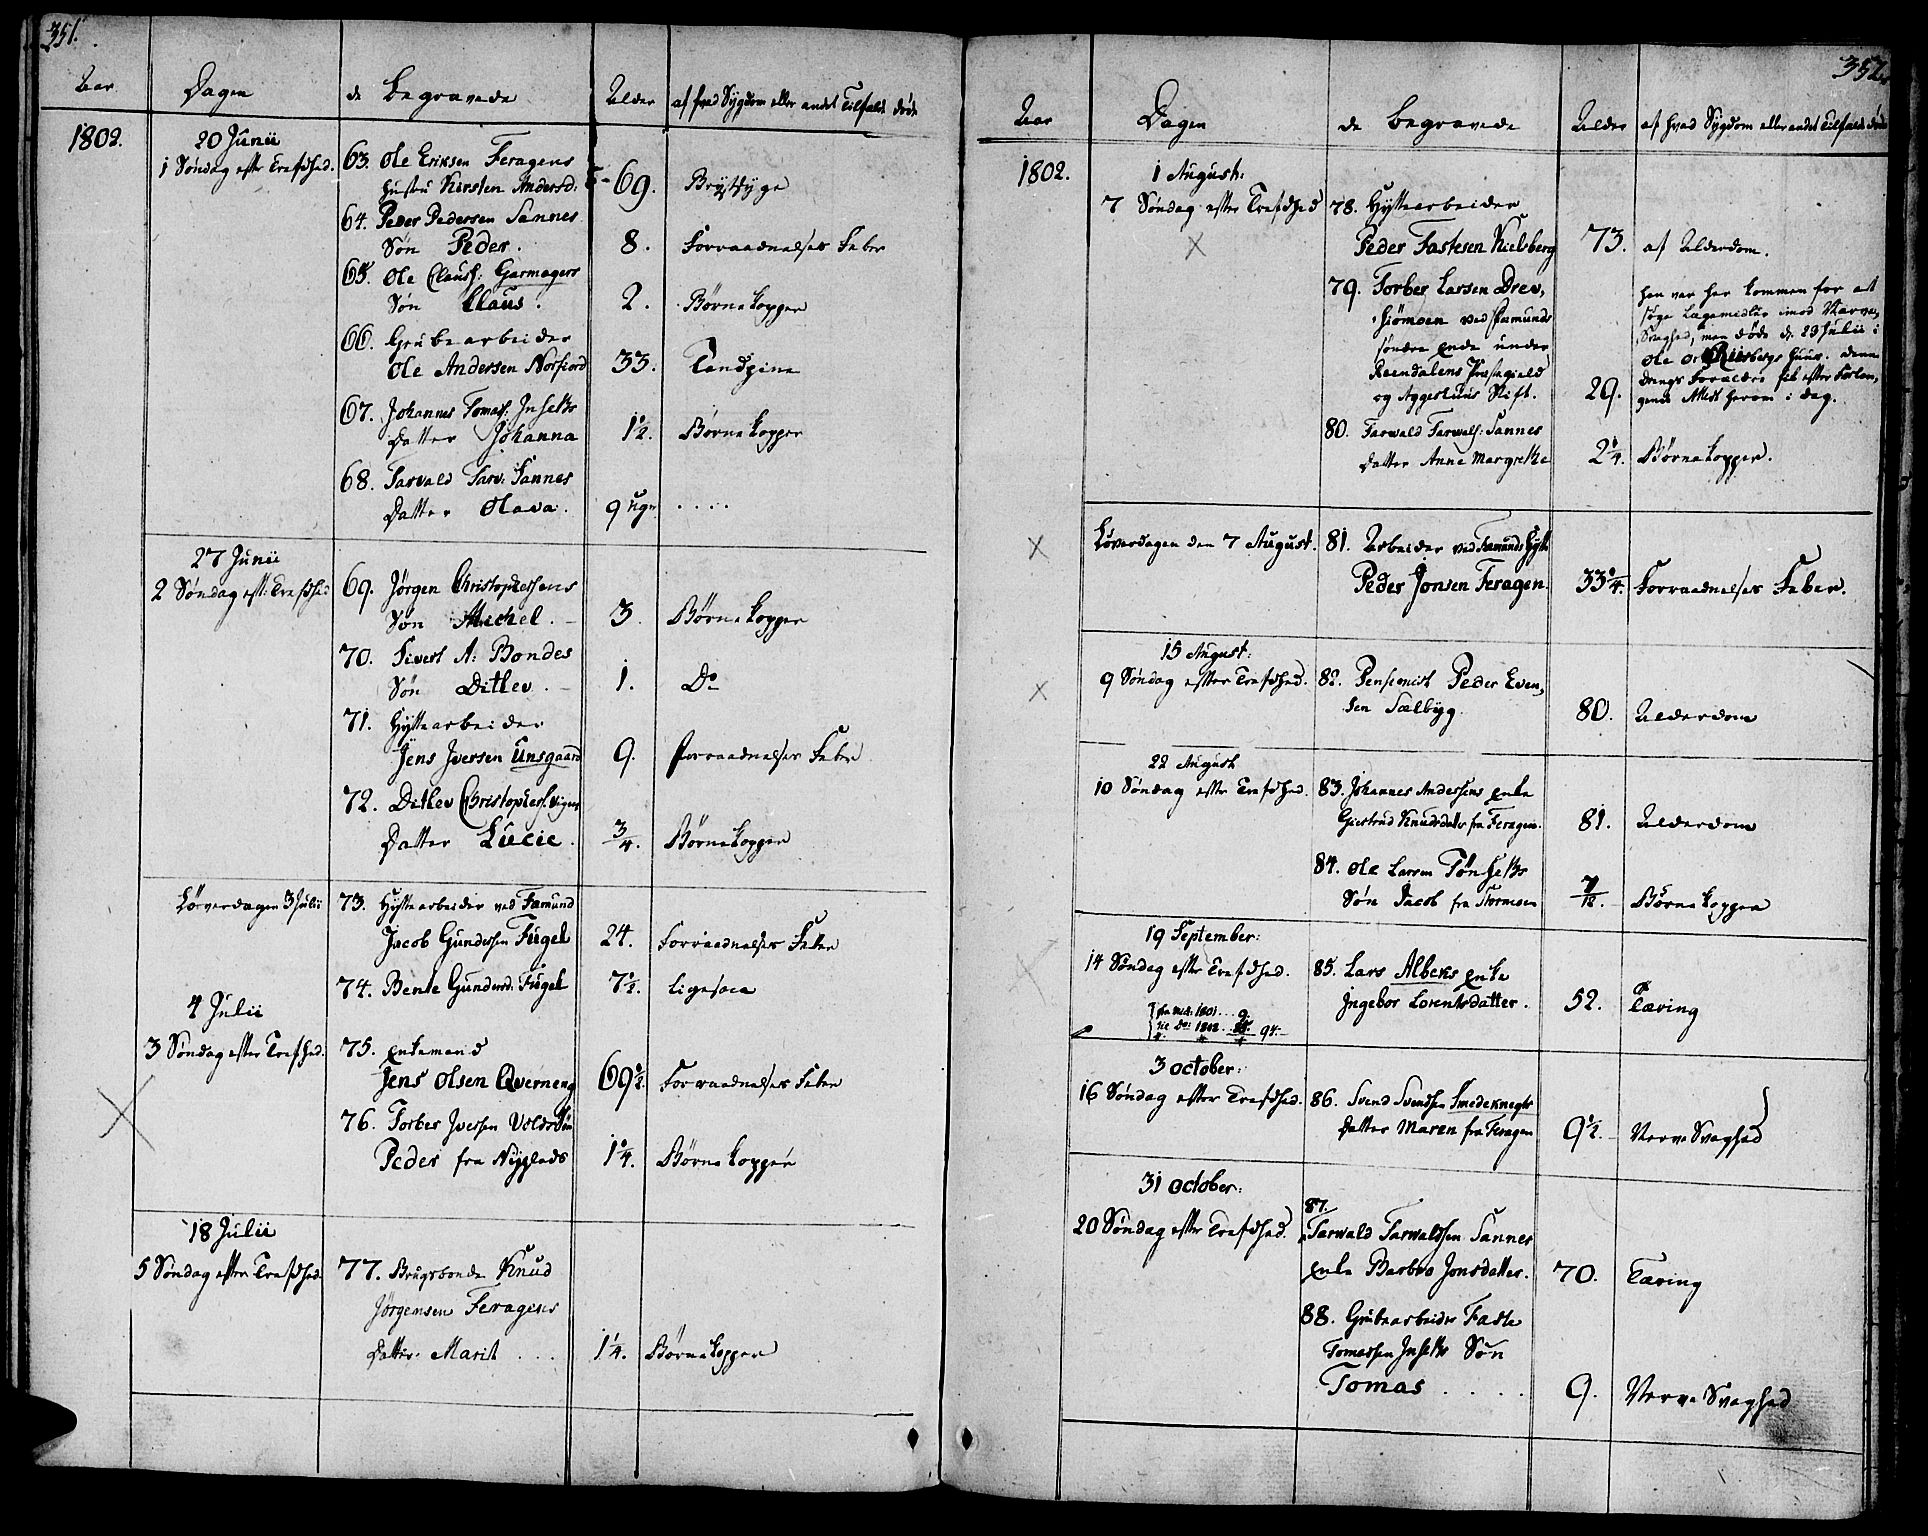 351.
Aar
Dagen
de begravede
Alder
af hvad Sygdom eller andet Tilfælde døde
1802.
20 Junii
1 Søndag efter Trefdhed.
63. Ole Eriksen Feragens
Hustru Kirsten Andersd:
69.
Brystsyge
64. Peder Pedersen Sannes
Søn Peder.
8.
Forraadnelses Feber
65. Ole Clausf: Garmagers
Søn Claus.
2.
Børnekopper
66. Grubearbeider
Ole Andersen Norfiord
33.
Tandpine
67. Johannes Tomasf: Insets
Datter Johanna
1½.
Børnekopper
68. Tarvald Tarv: Sannes
Datter Olava.
9 Ugr
. . . .
27 Junii
2 Søndag eft: Trefdhed
69. Jørgen Christophersens
Søn Michel.
3.
Børnekopper
70. Sivert A: Bondes
Søn Ditlev.
1.
Do
71. Hyttearbeider
Jens Iversen Unsgaard
9.
Forraadnelses Feber
72. Ditlev Christophersf. Vigens
Datter Lucie.
3/4.
Børnekopper
Løverdagen 3 Julii
73. Hyttearbeider ved Famund
Jacob Gundersen Fugel
24.
Forraadnelses Feber
74. Bente Gundersd. Fugel
7½.
Ligesaa
4 Julii
3 Søndag efter Trefhed.
75. Enkemand
Jens Olsen Qverneng
69½.
Forraadnelses Feber
76. Torber Iversen Volds Søn
Peder fra Nyplads
1¼.
Børnekopper
18 Julii
5 Søndag efter Trefdhed
77. Brugsbonde Knud
Jørgensen Feragens
Datter Marit . . .
1¼.
Børnekopper
352.
Aar
Dagen
de begravede
Alder
af hvad Sygdom eller andet Tilfælde døde
1802.
1 August:
7 Søndag efter Trefdhed
78. Hyttearbeider
Peder Fastesen Kielsberg
73.
af Alderdom.
79. Torber Larsen Drev,
siømoen ved Famunds
søndre Ende under
Rendalens Præstegield
og Aggershuus Stift.
29.
han var her kommen for at
søge Lægemidler imod Nerve,
Svaghed, men døde d. 29 Julii i
Ole Or Riisbergs Huus. denne
Drengs Forældre fik efter Forlan,
gende Attest herom i Dag.
80. Tarwald Tarwalf: Sannes
Datter Anne Margrethe
2¼.
Børnekopper.
Løverdagen den 7 August.
81. Arbeider ved Famunds Hytte
Peder Jonsen Feragen.
33¼.
Forraadnelses Feber.
15 August:
9 Søndag efter Trefdhed.
82. Pensionist Peder Even,
sen Sælbyg.
80.
Alderdom
22 August
10 Søndag efter Trefdhed.
83. Johannes Andersens Enke
Giertrud Knudsdatter fra Feragen.
81.
Alderdom
84. Ole Larsen Tønsets
Søn Jacob fra Stormoen
7/12.
Børnekopper
19 September:
14 Søndag efter Trefdhed.
85. Lars Albeks Enke
Ingebor Lorentsdatter.
52.
Tæring
1801 . . . 9.
1802 . . . 94.
3 October:
16 Søndag efter Trefdhed.
86. Svend Svendsen Smedeknegts
Datter Maren fra Feragen
9½.
Nerve Svaghed
31 October:
20 Søndag efter Trefdhed.
87.
Tarwald Tarwaldsen Sannes
Enke Barbro Jonsdatter.
70.
Tæring
88. Grubearbeider Faste
Tomassen Insets Søn
Tomas . . . .
9.
Nerve Svaghed